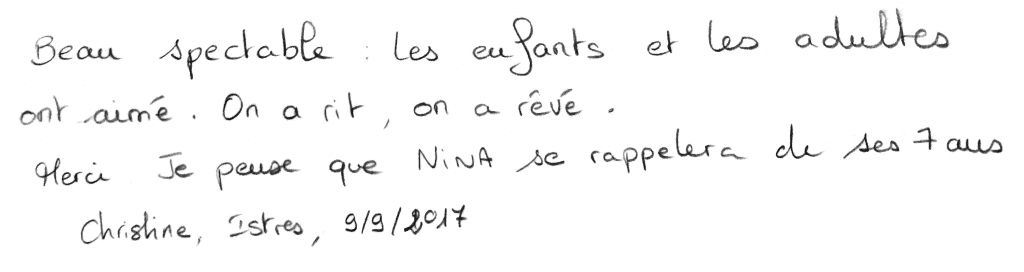 Beau spectable : les enfants et les adultes
ont aimé. On a rit, on a rêvé.
Merci Je pense que NiNA se rappelera de ses 7 ans
Christine, Istres, 9/9/2017